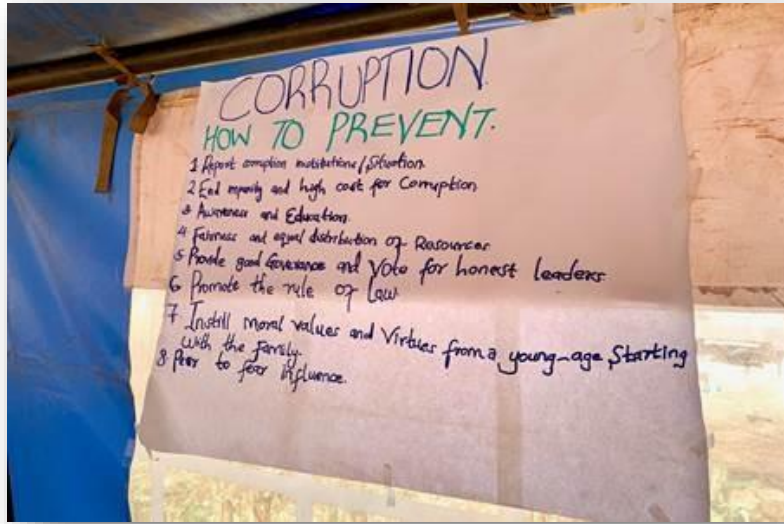 CORRUPTION.
HOW TO PREVENT.
1 Report corruption institutions/Situation
2 End and high cost for Corruption
3 Awareness and Education.
4 Fairness and equal distribution of Resources
5 Provide good Governance and Vote for honest leaders
6 Promote the rule of Law
7 Instill moral values and Virtues from a young-age, Starting
With the family.
8 Peer to influence.